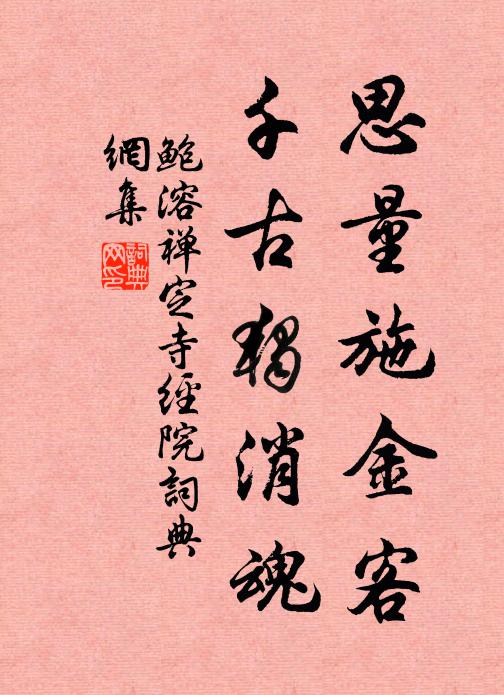 思量施金客
千古獨消魂
鲍溶禅定寺經院詞典
網集
詞典
网印